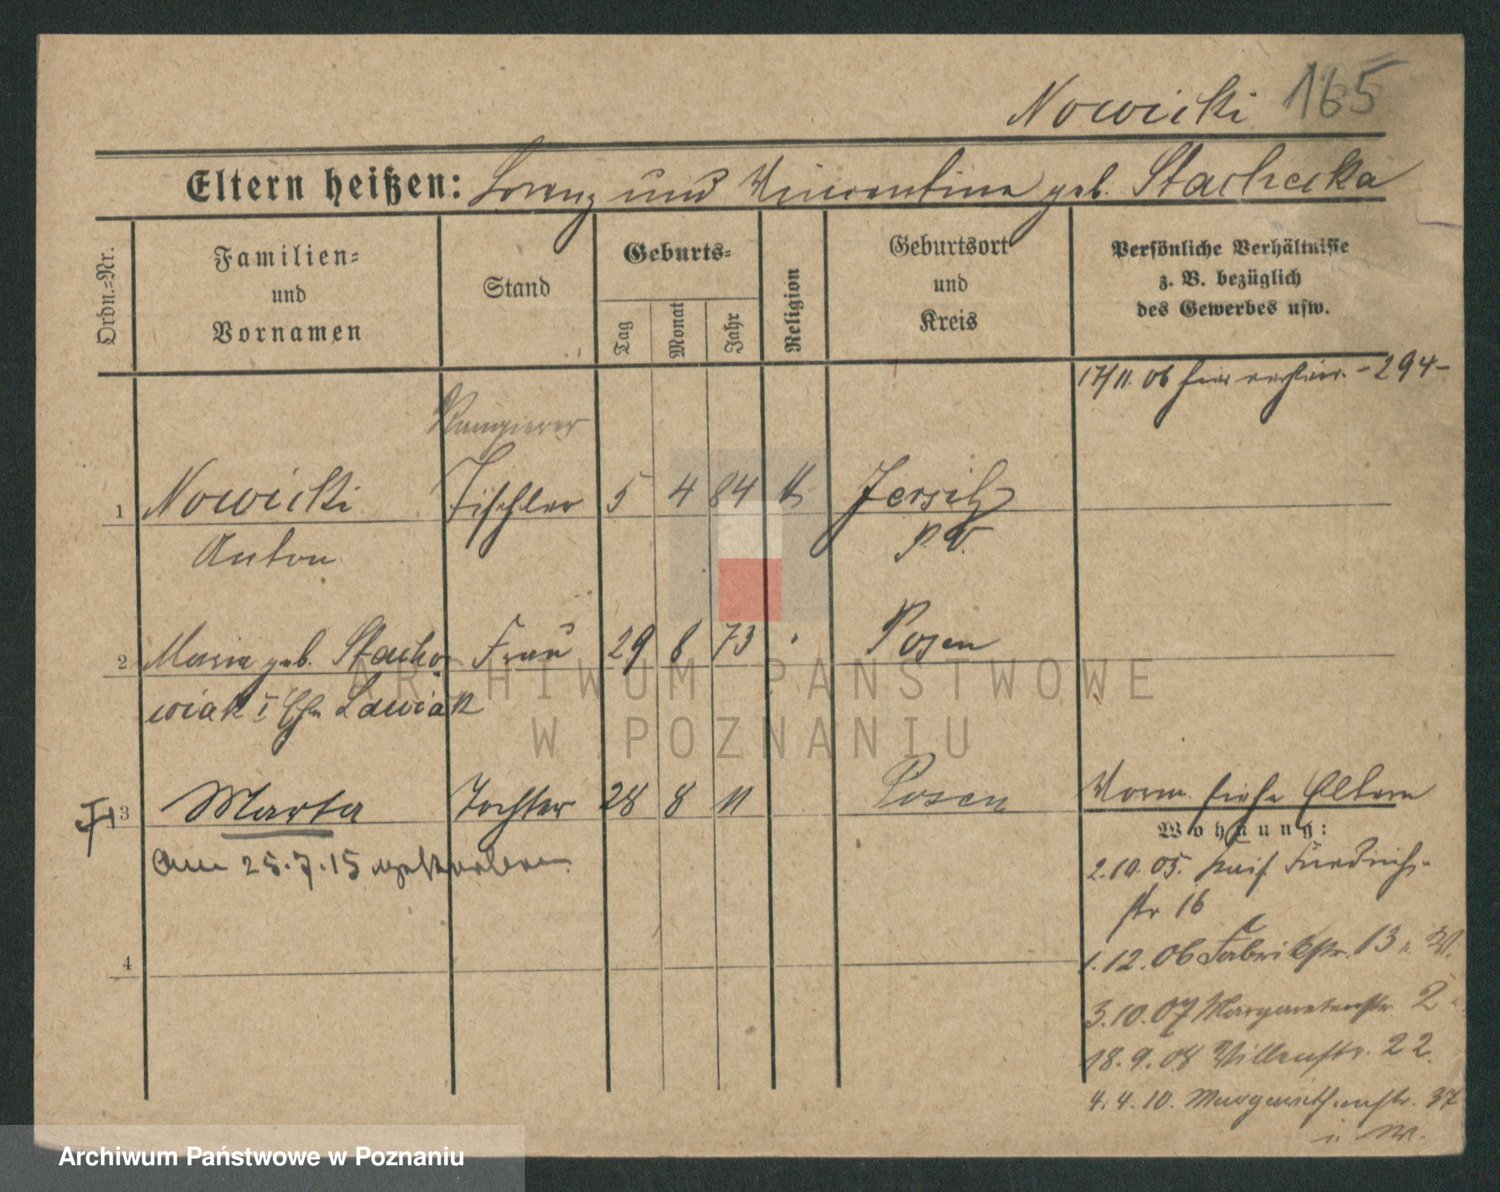 Nowicki 165
Eltern heißen: Lorenz und Vincentina geb. Stachecka
Ordn.=Nr.
Familien=
und
Vornamen
Stand
Geburts=
Tag
Monat
Jahr
Religion
Geburtsort
und
Kreis
Persönliche Verhältnisse
z. B. bezüglich
des Gewerbes usw.
17/11. 06 -294-
Rangierer
1 Nowicki Tischler 5 4 84 k Jersitz
Anton P. W.
2 Maria geb. Stacho Frau 29 8 73 Posen
wiak I Ehe Lawiak
3 Marta Tochter 28 8 11 Posen
Am 25.7.15 gestorben
4
Vorm. siehe Eltern
Wohnung:
2.10.05. Friedrich
str 16
1.12.06 Fabrikstr. 13
3.10.07 Margaretenstr 2
18.9.08 Villenstr. 22.
4.4.10. Margarethenstr. 37
ARCHIWUM PAŃSTWOWE
W POZNANIU
Archiwum Państwowe w Poznaniu